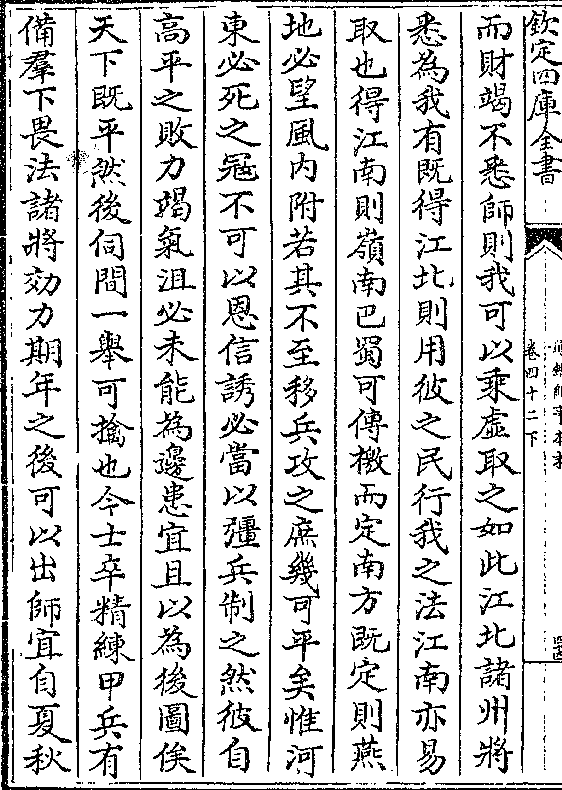 欽定四庫全書
卷四十二下
而財竭不悉師則我可以乘虛取之如此江北諸州將
悉為我有既得江北則用彼之民行我之法江南亦易
取也得江南則嶺南巴蜀可傳檄而定南方既定則燕
地必望風內附若其不至移兵攻之庶幾可平矣惟河
東必死之冦不可以恩信誘必當以彊兵制之然彼自
高平之敗力竭氣沮必未能為邊患宜且以為後圖俟
天下既平然後伺間一舉可擒也今士卒精練甲兵有
備羣下畏法諸將効力期年之後可以出師宜自夏秋